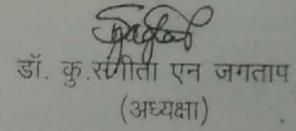 डॉ. कु.संगीता एन जगताप
(अध्यक्षा)